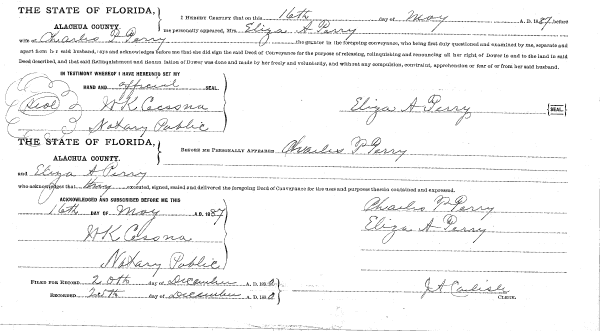 THE STATE OF FLORIDA,
ALACHUA COUNTY.
I HEREBY CERTIFY that on this 16th day of May A. D. 1887 before
me personally appeared, Mrs. Eliza A Perry
wife of Charles P Perry the grantor to the foregoing conveyance, who being first duly questioned and examined by me, separate and
apart from her said husband, says and acknowledges before me that she did sign the said Deed of Conveyance for the purpose of releasing, relinquishing and renouncing all her right of Dower in and to the land in said
Deed described, and that said Relinquishment and Renunciation of Dower was done and made by her freely and voluntarily, and without any compulsion, constraint, apprehension or fear of or from her said husband.
IN TESTIMONY WHEREOF I HAVE HEREUNTO SET MY
HAND AND official SEAL.
Seal W K Cessna
Eliza A Perry SEAL
Notary Public
THE STATE OF FLORIDA,
ALACHUA COUNTY.
BEFORE ME PERSONALLY APPEARED Charles P Perry
and Eliza A Perry
who acknowledges that they executed, signed, sealed and delivered the foregoing Deed of Conveyance for the uses and purposes therein contained and expressed.
ACKNOWLEDGED AND SUBSCRIBED BEFORE ME THIS
16th DAY OF May A.D. 1887
Charles P Perry
Eliza A Perry
W K Cessna
Notary Public
FILED FOR RECORD 20th day of December A. D. 188
RECORDED day of December A. D. 188
J A Carlisle
CLERK.